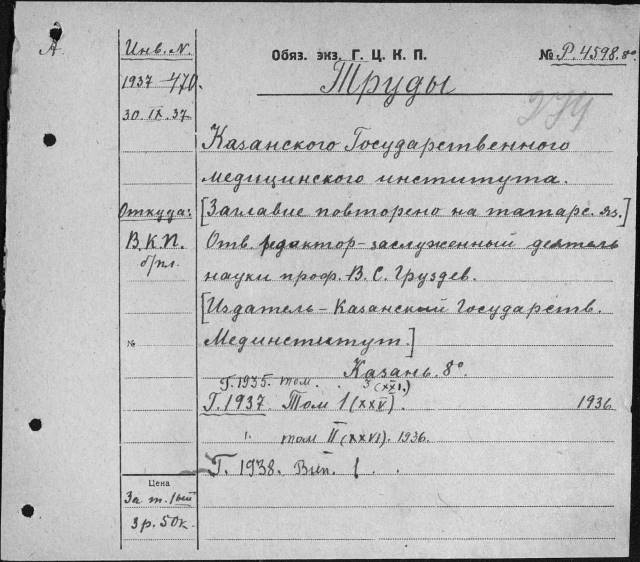 А.
Инв. N.
Обяз. экз. Г. Ц. К. П.
№ Р. 4598. 8°
1937 - 470.
Труды
30. IX. 37
274
Казанского Государственного
медицинского института.
Откуда:
[Заглавие повторено на татарс. яз.
В.К.П.
Отв. редактор-заслуженный деятель
б/пл.
науки проф. В. С. Груздев.
[Издатель - Казанский Государств.
№
Мединститут.]
Казань. 8°
Г. 1935. том. 3 (XXI.)
Г. 1937. Том 1 (XXV). 1936
том II (XXVI). 1936.
Г. 1938. Вып. 1.
Цена
За т. 1ый
3 р. 50 к.